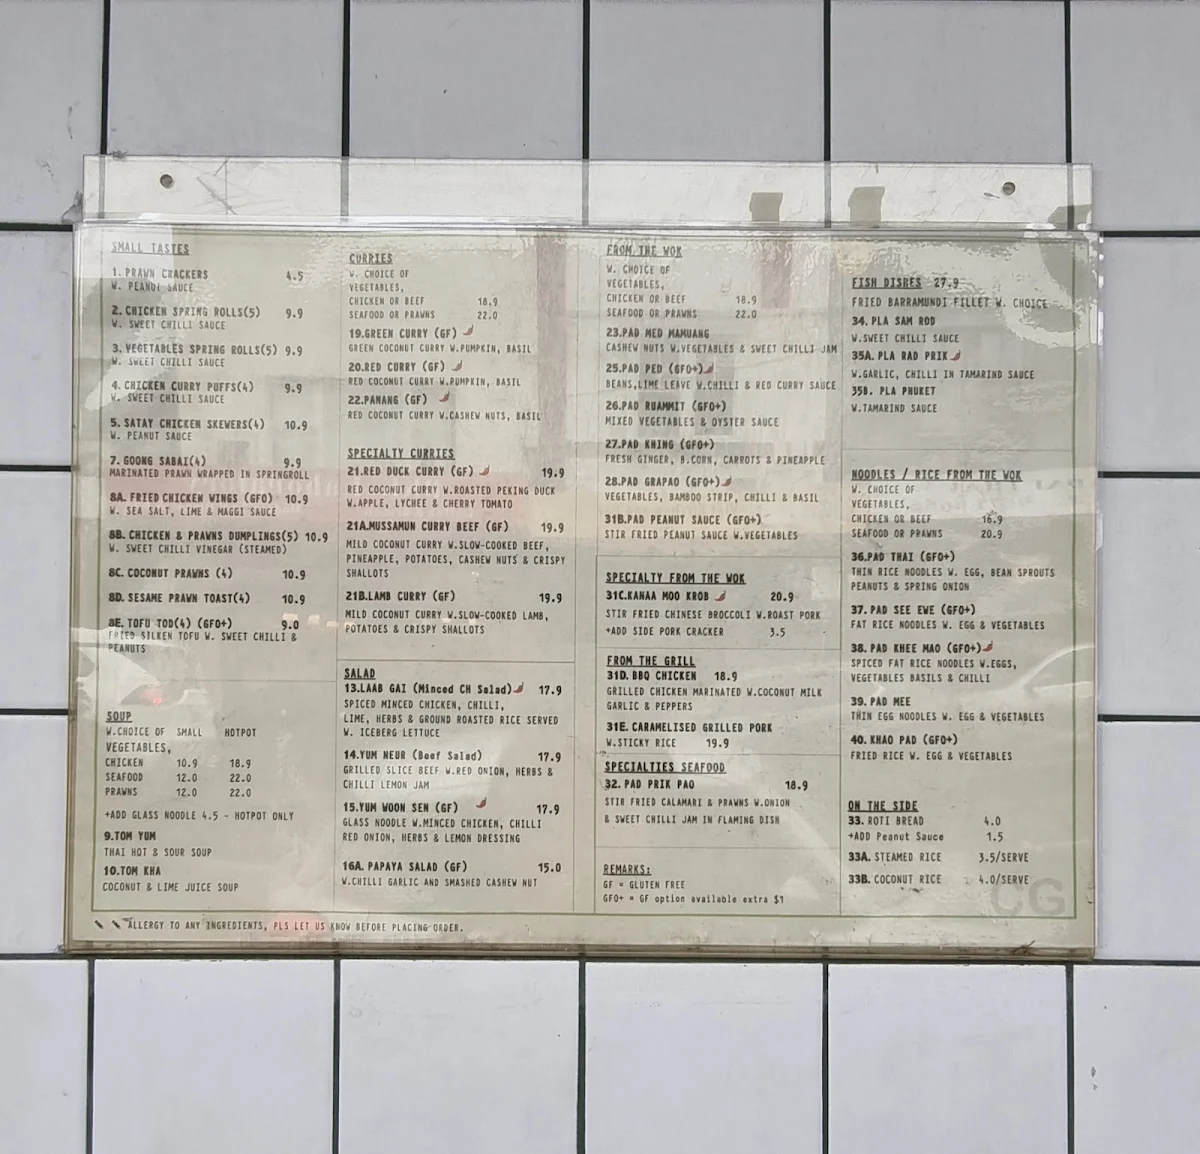 SMALL TASTES
1. PRAWN CRACKERS 4.5
W. PEANUT SAUCE
2. CHICKEN SPRING ROLLS(5) 9.9
W. SWEET CHILLI SAUCE
3. VEGETABLES SPRING ROLLS(5) 9.9
W. SWEET CHILLI SAUCE
4. CHICKEN CURRY PUFFS(4) 9.9
W. SWEET CHILLI SAUCE
5. SATAY CHICKEN SKEWERS(4) 10.9
W. PEANUT SAUCE
7. GOONG SABAI(4) 9.9
MARINATED PRAWN WRAPPED IN SPRINGROLL
8A. FRIED CHICKEN WINGS (GFO) 10.9
W. SEA SALT, LIME & MAGGI SAUCE
8B. CHICKEN & PRAWNS DUMPLINGS(5) 10.9
W. SWEET CHILLI VINEGAR (STEAMED)
8C. COCONUT PRAWNS (4) 10.9
8D. SESAME PRAWN TOAST(4) 10.9
8E. TOFU TOD(4) (GFO+) 9.0
FRIED SILKEN TOFU W. SWEET CHILLI &
PEANUTS
SOUP
W.CHOICE OF SMALL HOTPOT
VEGETABLES,
CHICKEN 10.9 18.9
SEAFOOD 12.0 22.0
PRAWNS 12.0 22.0
+ADD GLASS NOODLE 4.5 - HOTPOT ONLY
9.TOM YUM
THAI HOT & SOUR SOUP
10.TOM KHA
COCONUT & LIME JUICE SOUP
CURRIES
W. CHOICE OF
VEGETABLES,
CHICKEN OR BEEF 18.9
SEAFOOD OR PRAWNS 22.0
19.GREEN CURRY (GF)
GREEN COCONUT CURRY W.PUMPKIN, BASIL
20.RED CURRY (GF)
RED COCONUT CURRY W.PUMPKIN, BASIL
22.PANANG (GF)
RED COCONUT CURRY W.CASHEW NUTS, BASIL
SPECIALTY CURRIES
21.RED DUCK CURRY (GF) 19.9
RED COCONUT CURRY W.ROASTED PEKING DUCK
W.APPLE, LYCHEE & CHERRY TOMATO
21A.MUSSAMUN CURRY BEEF (GF) 19.9
MILD COCONUT CURRY W.SLOW-COOKED BEEF,
PINEAPPLE, POTATOES, CASHEW NUTS & CRISPY
SHALLOTS
21B.LAMB CURRY (GF) 19.9
MILD COCONUT CURRY W.SLOW-COOKED LAMB,
POTATOES & CRISPY SHALLOTS
SALAD
13.LAAB GAI (Minced CH Salad) 17.9
SPICED MINCED CHICKEN, CHILLI,
LIME, HERBS & GROUND ROASTED RICE SERVED
W. ICEBERG LETTUCE
14.YUM NEUR (Beef Salad) 17.9
GRILLED SLICE BEEF W.RED ONION, HERBS &
CHILLI LEMON JAM
15.YUM WOON SEN (GF) 17.9
GLASS NOODLE W.MINCED CHICKEN, CHILLI
RED ONION, HERBS & LEMON DRESSING
16A. PAPAYA SALAD (GF) 15.0
W.CHILLI GARLIC AND SMASHED CASHEW NUT
FROM THE WOK
W. CHOICE OF
VEGETABLES,
CHICKEN OR BEEF 18.9
SEAFOOD OR PRAWNS 22.0
23.PAD MED MAMUANG
CASHEW NUTS W.VEGETABLES & SWEET CHILLI JAM
25.PAD PED (GFO+)
BEANS,LIME LEAVE W.CHILLI & RED CURRY SAUCE
26.PAD RUAMMIT (GFO+)
MIXED VEGETABLES & OYSTER SAUCE
27.PAD KHING (GFO+)
FRESH GINGER, B.CORN, CARROTS & PINEAPPLE
28.PAD GRAPAO (GFO+)
VEGETABLES, BAMBOO STRIP, CHILLI & BASIL
31B.PAD PEANUT SAUCE (GFO+)
STIR FRIED PEANUT SAUCE W.VEGETABLES
SPECIALTY FROM THE WOK
31C.KANAA MOO KROB 20.9
STIR FRIED CHINESE BROCCOLI W.ROAST PORK
+ADD SIDE PORK CRACKER 3.5
FROM THE GRILL
31D. BBQ CHICKEN 18.9
GRILLED CHICKEN MARINATED W.COCONUT MILK
GARLIC & PEPPERS
31E. CARAMELISED GRILLED PORK
W.STICKY RICE 19.9
SPECIALTIES SEAFOOD
32. PAD PRIK PAO 18.9
STIR FRIED CALAMARI & PRAWNS W.ONION
& SWEET CHILLI JAM IN FLAMING DISH
REMARKS:
GF = GLUTEN FREE
GFO+ = GF option available extra $1
FISH DISHES 27.9
FRIED BARRAMUNDI FILLET W. CHOICE
34. PLA SAM ROD
W.SWEET CHILLI SAUCE
35A. PLA RAD PRIK
W.GARLIC, CHILLI IN TAMARIND SAUCE
35B. PLA PHUKET
W.TAMARIND SAUCE
NOODLES / RICE FROM THE WOK
W. CHOICE OF
VEGETABLES,
CHICKEN OR BEEF 16.9
SEAFOOD OR PRAWNS 20.9
36.PAD THAI (GFO+)
THIN RICE NOODLES W. EGG, BEAN SPROUTS
PEANUTS & SPRING ONION
37. PAD SEE EWE (GFO+)
FAT RICE NOODLES W. EGG & VEGETABLES
38. PAD KHEE MAO (GFO+)
SPICED FAT RICE NOODLES W.EGGS,
VEGETABLES BASILS & CHILLI
39. PAD MEE
THIN EGG NOODLES W. EGG & VEGETABLES
40. KHAO PAD (GFO+)
FRIED RICE W. EGG & VEGETABLES
ON THE SIDE
33. ROTI BREAD 4.0
+ADD Peanut Sauce 1.5
33A. STEAMED RICE 3.5/SERVE
33B. COCONUT RICE 4.0/SERVE
CG
ALLERGY TO ANY INGREDIENTS, PLS LET US KNOW BEFORE PLACING ORDER.